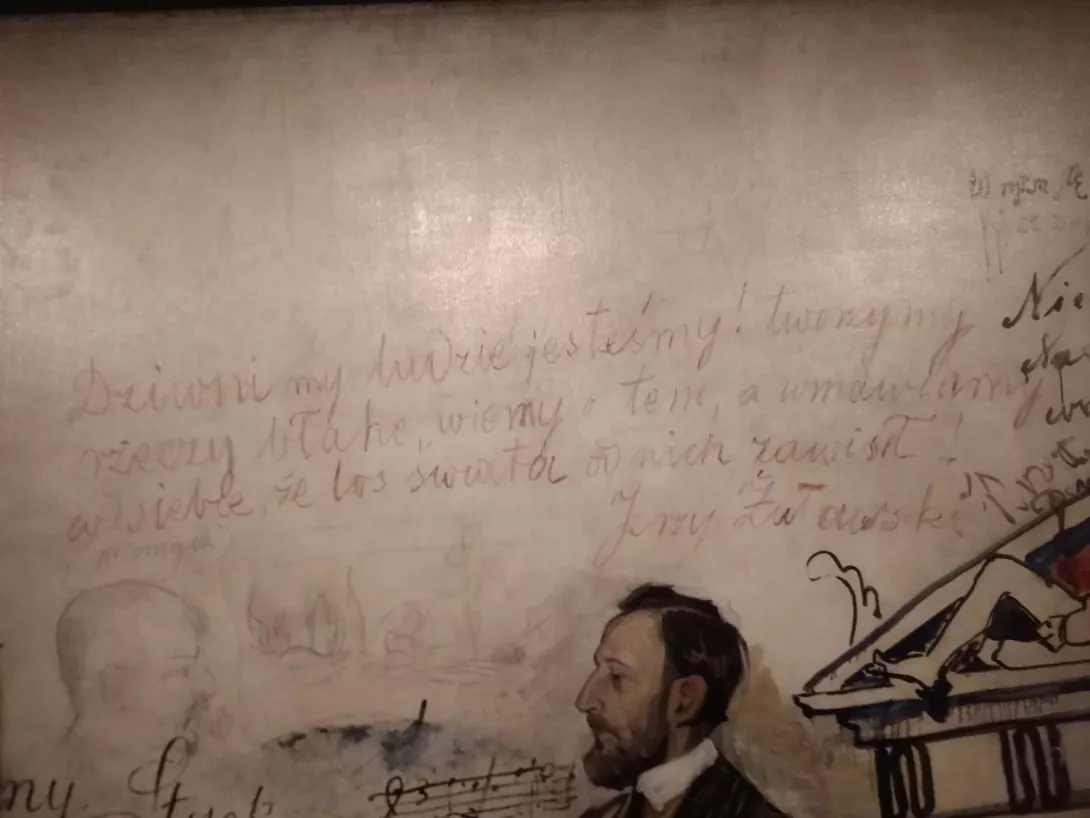 Dziwni my ludzie jesteśmy! tworzymy
rzeczy błahe, wiemy o tem, a wmawiamy
w siebie, że los świata od nich zawisł!
Jerzy Żuławski
Nie
my